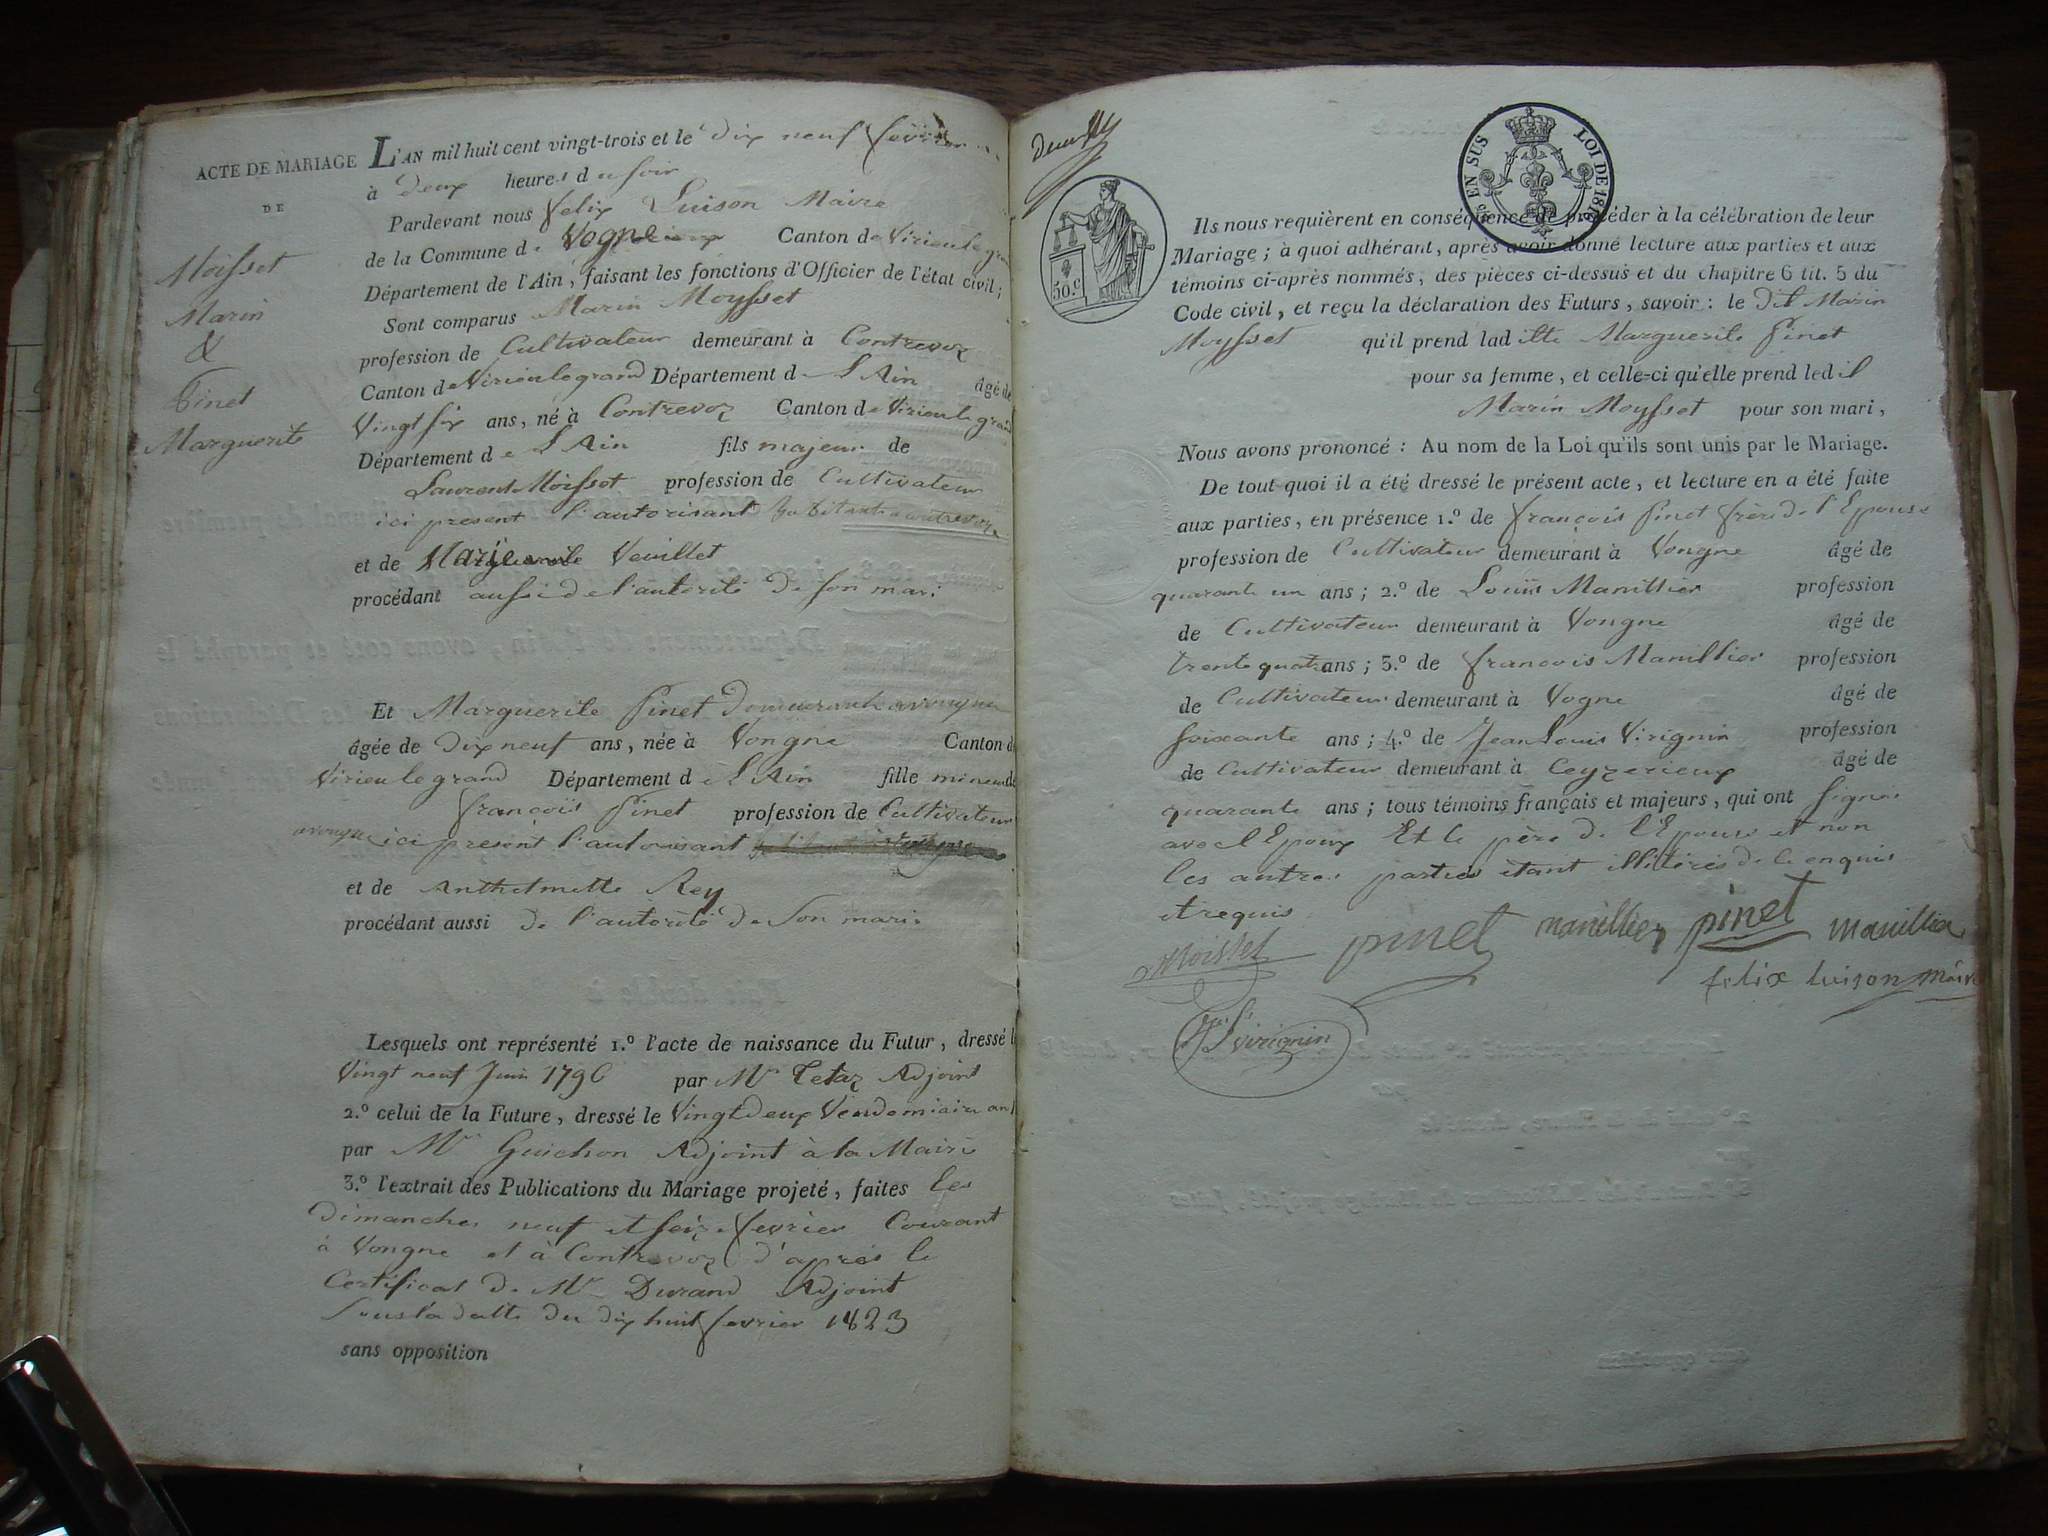 ACTE DE MARIAGE
DE
Moisset
Marin
&
Pinet
Marguerite
L'AN mil huit cent vingt-trois et le dix neuf fevrier
à deux heures du soir
Pardevant nous felix Luison Maire
de la Commune de Vogne Canton de Virieu le gran
Département de l'Ain, faisant les fonctions d'Officier de l'état civil;
Sont comparus Marin Moysset
profession de Cultivateur demeurant à Contrevoz
Canton de Virieu le grand Département de L'Ain âgé de
Vingt six ans, né à Contrevoz Canton de Virieu le grand
Département de L'Ain fils majeur de
Laurent Moisset profession de Cultivateur
ici present l'autorisant habitant a contrevoz
et de Marguerite Veuillet
procédant aussi de l'autorité de son mari
Et Marguerite Pinet demeurant a vongne
âgée de dix neuf ans, née à Vongne Canton de
Virieu le grand Département de L'Ain fille mineure de
françois Pinet profession de Cultivateur
a vongne ici present l'autorisant
et de Anthelmette Rey
procédant aussi de l'autorité de son mari
Lesquels ont représenté 1.º l'acte de naissance du Futur, dressé l
Vingt neuf Juin 1796 par Mr Tetaz Adjoint
2.º celui de la Future, dressé le Vingt deux Vendemiaire an
par Mr Guichon Adjoint à la Mairie
3.º l'extrait des Publications du Mariage projeté, faites les
dimanches neuf et seize fevrier Courant
à Vongne et à Contrevoz d'après le
Certificat de Mr Durand Adjoint
sous la datte du dix huit fevrier 1823
sans opposition
50.c
EN SUS LOI DE 181
Ils nous requièrent en conséquence de procéder à la célébration de leur
Mariage; à quoi adhérant, après avoir donné lecture aux parties et aux
témoins ci-après nommés, des pièces ci-dessus et du chapitre 6 tit. 5 du
Code civil, et reçu la déclaration des Futurs, savoir: le dit Marin
Moysset qu'il prend laditte Marguerite Pinet
pour sa femme, et celle-ci qu'elle prend ledit
Marin Moysset pour son mari,
Nous avons prononcé: Au nom de la Loi qu'ils sont unis par le Mariage.
De tout quoi il a été dressé le présent acte, et lecture en a été faite
aux parties, en présence 1.º de françois Pinet frère de l'Epouse
profession de Cultivateur demeurant à Vongne âgé de
quarante un ans; 2.º de Louis Manillier profession
de Cultivateur demeurant à Vongne âgé de
trente quatre ans; 3.º de francois Manillier profession
de Cultivateur demeurant à Vogne âgé de
soixante ans; 4.º de Jean Louis Virignin profession
de Cultivateur demeurant à Ceyzerieux âgé de
quarante ans; tous témoins français et majeurs, qui ont signés
avec l'Epoux Et le père de l'Epouse et non
les autres parties étant illitérés de le enquis
et requis
Moisset pinet manillier pinet manillier
felix luison maire
virignin